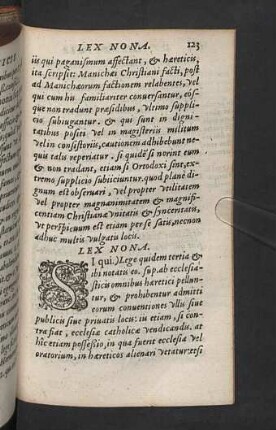 LEX NONA. 123
iis qui paganismum affectant, & hæreticis,
ita scripsit: Manichæi Christiani facti, post
ad Manichæorum factionem relabentes, vel
qui cum his familiariter conversantur, eos-
que non tradunt præsidibus, ultimo suppli-
cio subiugantur. & qui sunt in digni-
tatibus positi vel in magisteriis militum
vel in consistoriis, cautionem adhibebunt ne-
quis talis reperiatur. si quidẽ si norint eum
& non tradant, etiam si Orthodoxi sint, ex-
tremo supplicio subiiciuntur. quod planè di-
gnum est observari, vel propter utilitatem
vel propter magnanimitatem & magnifi-
centiam Christianæ unitatis & synceritatis,
ut perspicuum est etiam per se satis, necnon
adhuc multis vulgatis locis.
LEX NONA.
SI qui.) Lege quidem tertia &
ibi notatis eo. sup. ab ecclesia-
sticis omnibus hæretici pellun-
tur, & prohibentur admitti
eorum conventiones ullis sive
publicis sive privatis locis: iis etiam, si con-
tra fiat, ecclesiæ catholicæ vendicandis. at
hic etiam possessio, in qua fuerit ecclesia vel
oratorium, in hæreticos alienari vetatur: etsi